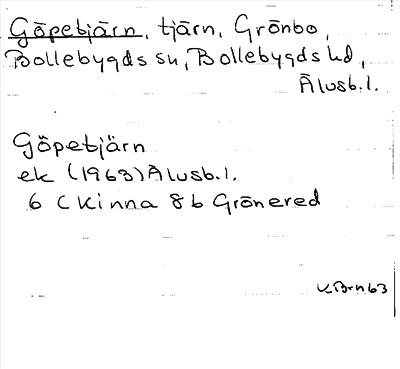 Göpetjärn, tjärn, Grönbo,
Bollebygds sn, Bollebygds hd,
Älvsb.l.
Göpetjärn
ek (1963) Älvsb.l.
6 C Kinna 8b Grönered
63